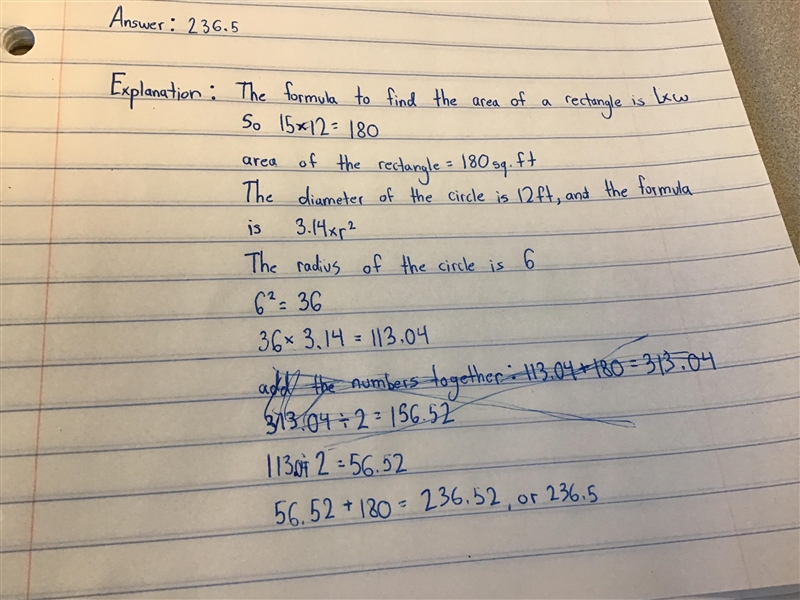 Answer: 236.5
Explanation: The formula to find the area of a rectangle is L×w
So 15×12=180
area of the rectangle=180sq.ft
The diameter of the circle is 12ft, and the formula
is 3.14×r²
The radius of the circle is 6
6²=36
36×3.14=113.04
add the numbers together: 113.04+180=313.04
313.04÷2=156.52
113.04÷2=56.52
56.52+180= 236.52, or 236.5